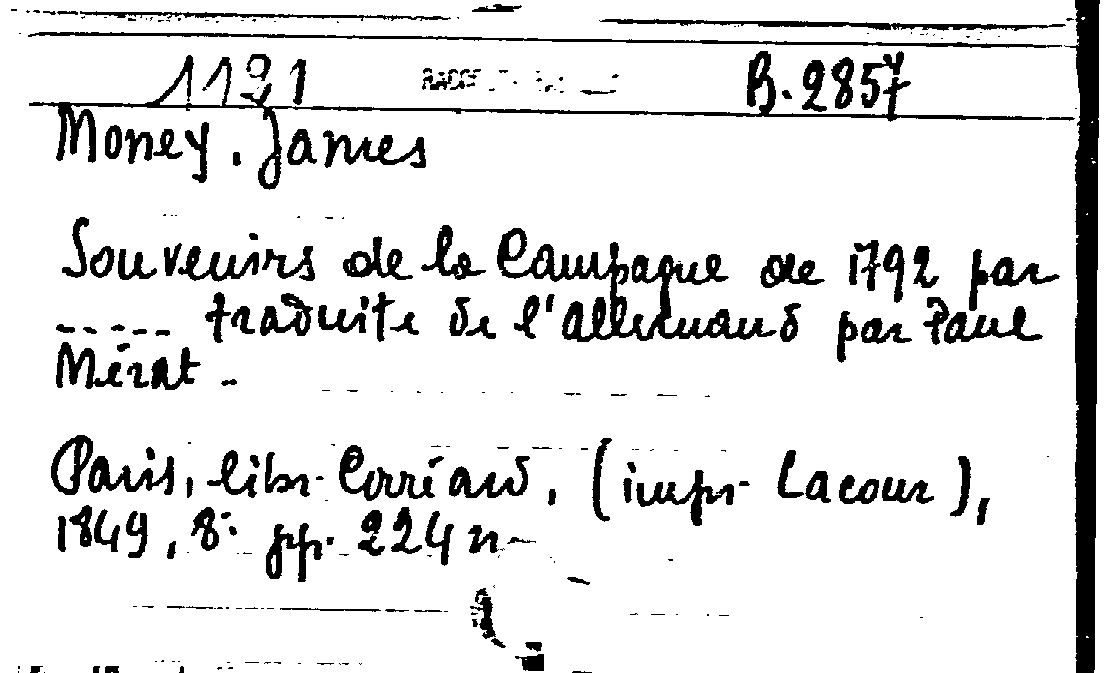 1121 B. 2857
Money, James
Souvenirs de la Campagne de 1792 par
----- traduite de l'allemand par Paul
Mérat -
Paris, libr. Corréard, (impr. Lacour),
1849, 8° pp. 224 n-